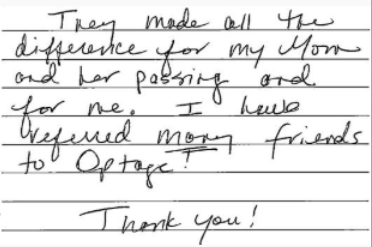 They made all the
difference for my Mom
and her passing and
for me. I have
referred many friends
to Optage!
Thank you!